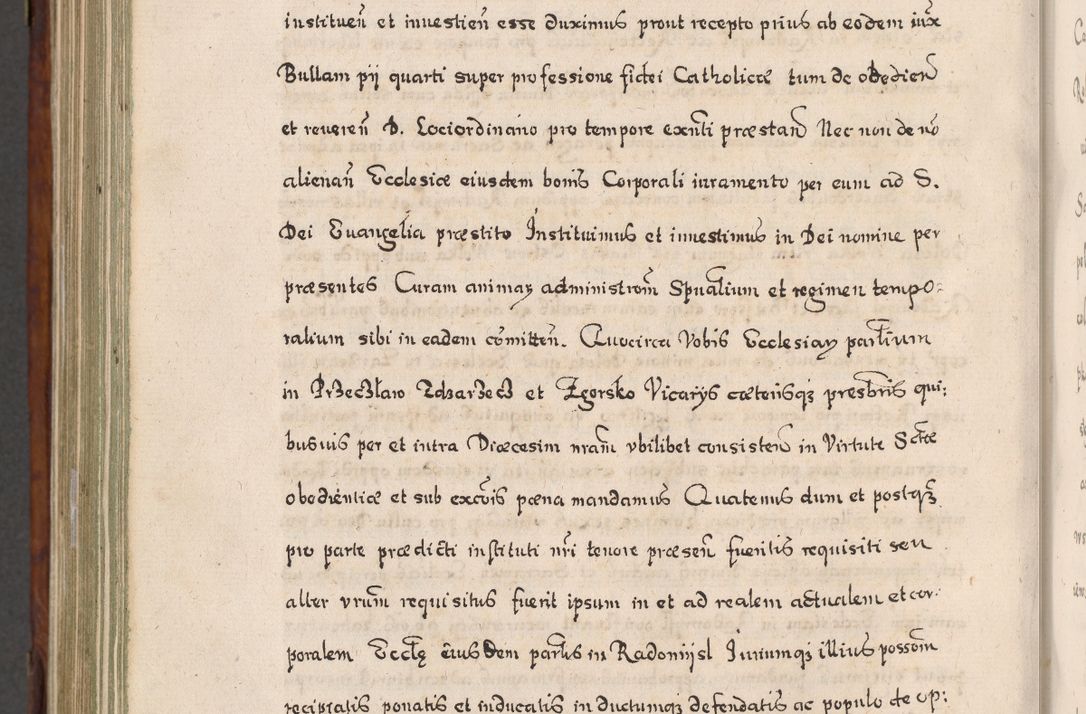 instituen̄ et inuestien̄ esse duximus prout recepto prius ab eodem iux̄
Bullam pij quarti super professione fidei Catholicæ tum de obedien̄
et reueren̄ D. Lociordinario pro tempore exn̄ti præstan̄ Nec non de nō
alienan̄ Ecclesiæ eiusdem bonis Corporali iuramento per eum ad S.
Dei Euangelia præstito Instituimus et inuestimus in Dei nomine per
præsentes Curam animaꝝ administrom̄ Spualium et regimen tempo=
ralium sibi in eadem cōmitten̄. Quocirca Vobis Ecclesiaꝝ parlium
in Przeczlaw Zdzarzecz et Zgorsko Vicarijs cæterisqꝫ presbr̄is qui:
busuis per et intra Diæcesim nram̄ vbilibet consisten̄ in Virtute Sctæ
obædientiæ et sub excōis pæna mandamus Quatenus dum et postqꝫ
pro parte prædicti instituti nr̄i tenore præsen̄ fueritis requisiti seu
alter vrum̄ requisitus fuerit ipsum in et ad realem actualem et cor:
poralem Eccłę eiusdem parlis in Radomijsl Iuriumqꝫ illius possom̄
recipiatis ponatis et inducatis inductumqꝫ defendatis ac populo de op: